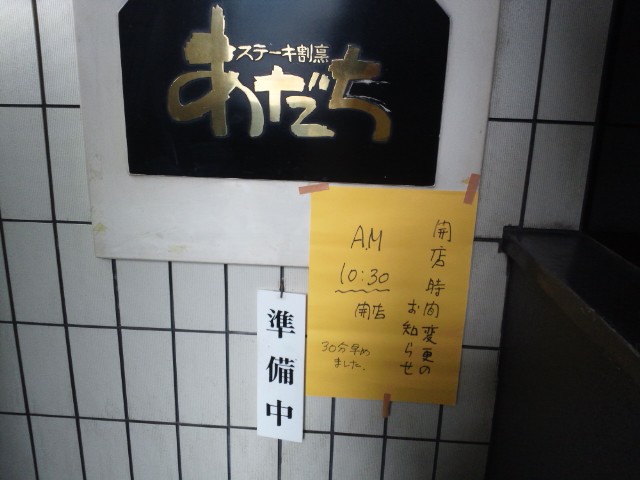 ステーキ割烹
あだち
開店時間変更の
お知らせ
AM
10:30
開店
30分早め
ました.
準備中